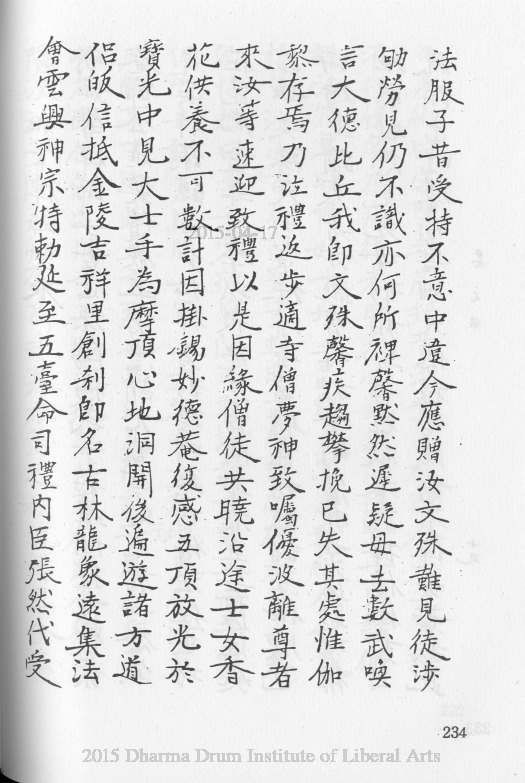 法服子昔受持不意中違今應贈汝文殊難見徒涉
劬勞見仍不識亦何所裨馨默然遲疑母去數武喚
言大德比丘我卽文殊馨疾趨攀挽已失其處惟伽
黎存焉乃泣禮返步適寺僧夢神致囑優波離尊者
來汝等速迎致禮以是因緣僧徒共曉沿途士女香
花供養不可數計因掛錫妙德菴復感五頂放光於
寶光中見大士手為摩頂心地洞開後遍遊諸方道
侶皈信抵金陵吉祥里創刹卽名古林龍象遠集法
會雲興神宗特勅延至五臺命司禮內臣張然代受
2015-04-17
234
2015 Dharma Drum Institute of Liberal Arts